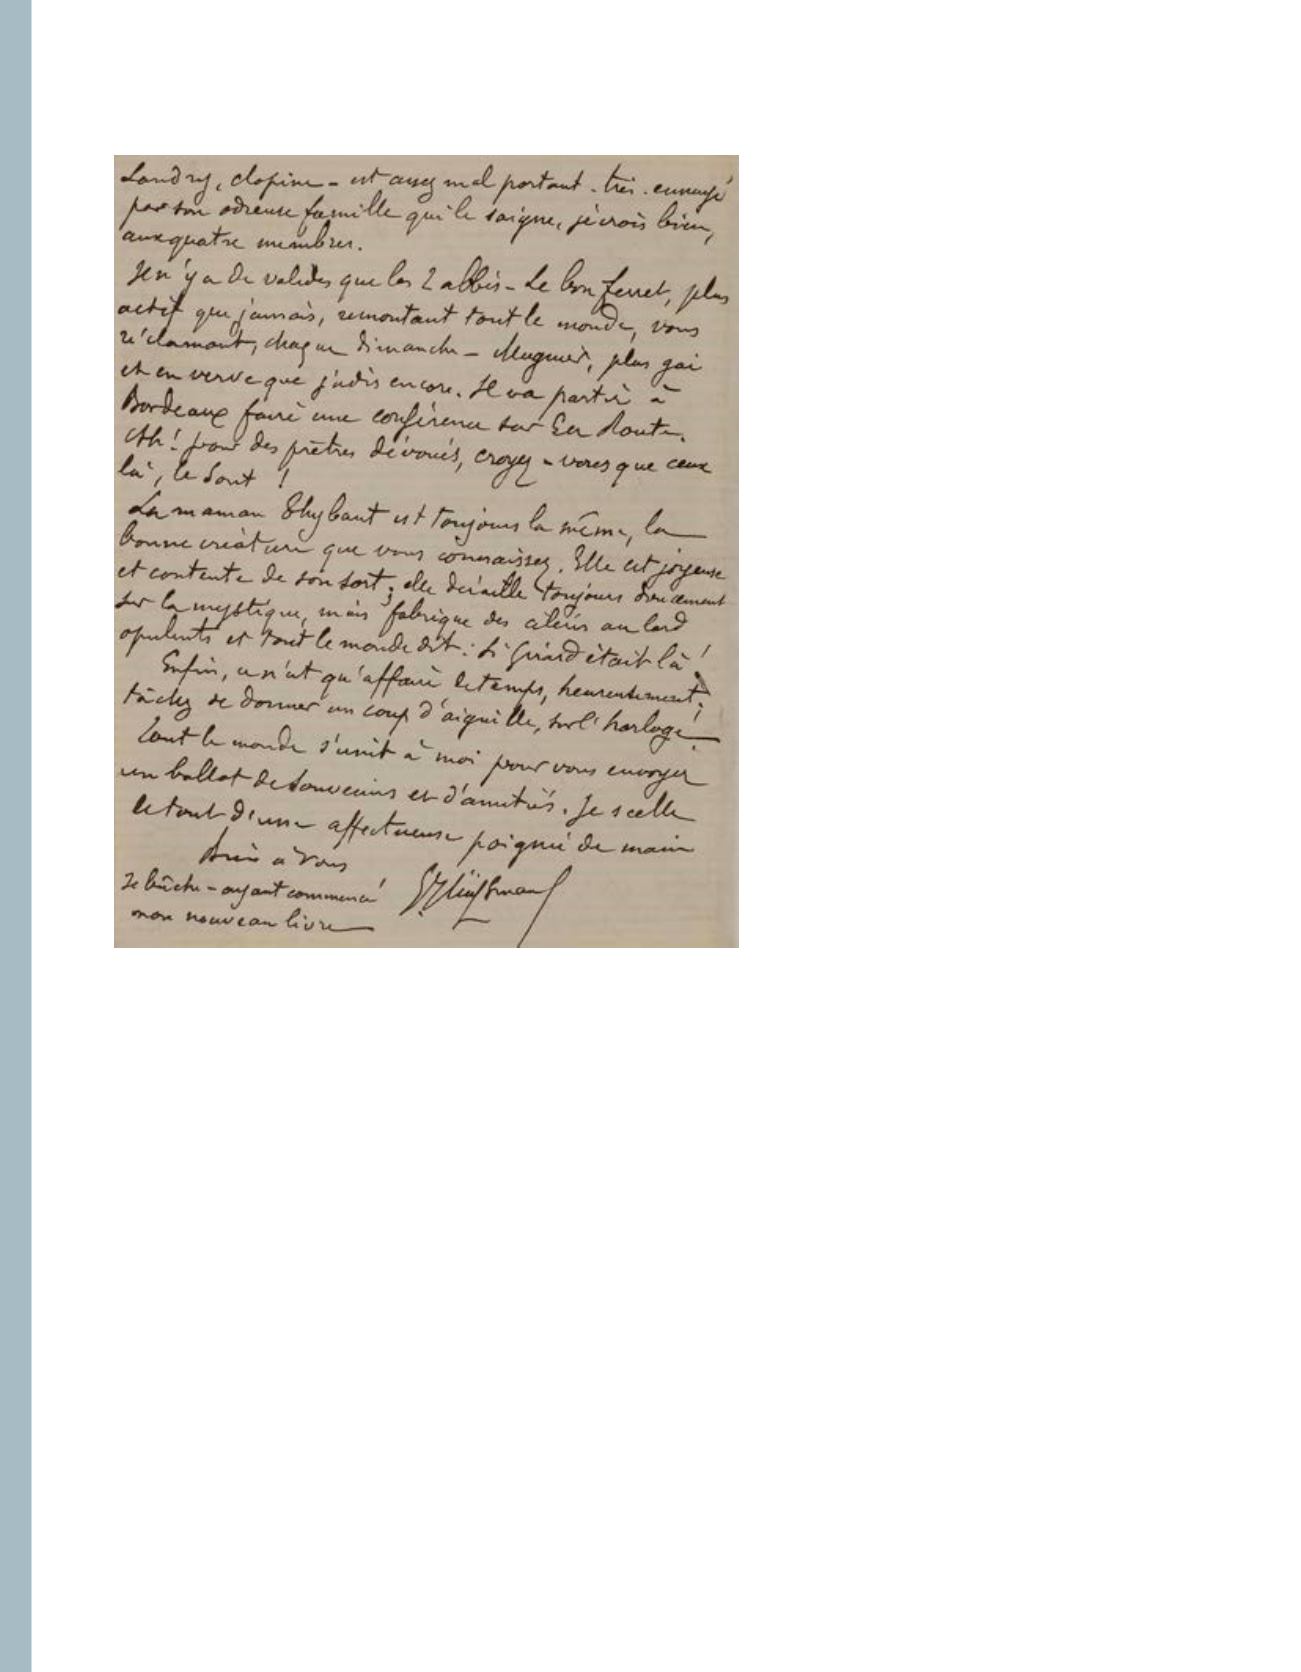 Landry, clopine – est assez mal portant – très ennuyé
par son odieuse famille qui le saigne, je crois bien,
aux quatre membres.
Il n'y a de valides que les 2 abbés – Le bon Ferret, plus
actif que jamais, remontant tout le monde, vous
réclamant, chaque dimanche – Mugnier, plus gai
et en verve que jadis encore. Il va partir à
Bordeaux faire une conférence sur En Route.
Ah ! pour des prêtres dévoués, croyez-vous que ceux
là, le sont !
La maman Thybaut est toujours la même, la
bonne créature que vous connaissez. Elle est joyeuse
et contente de son sort ; elle déraille toujours doucement
sur la mystique, mais fabrique des au lard
opulents et tout le monde dit : Si Girard était là !
Enfin, ce n'est qu'affaire de temps, heureusement ;
tâchez de donner un coup d'aiguille, sur l'horloge !
Tout le monde s'unit à moi pour vous envoyer
un ballot de souvenirs et d'amitiés. Je scelle
le tout d'une affectueuse poignée de main
Bien à vous
Je bûche – ayant commencé
mon nouveau livre
G J Huysmans